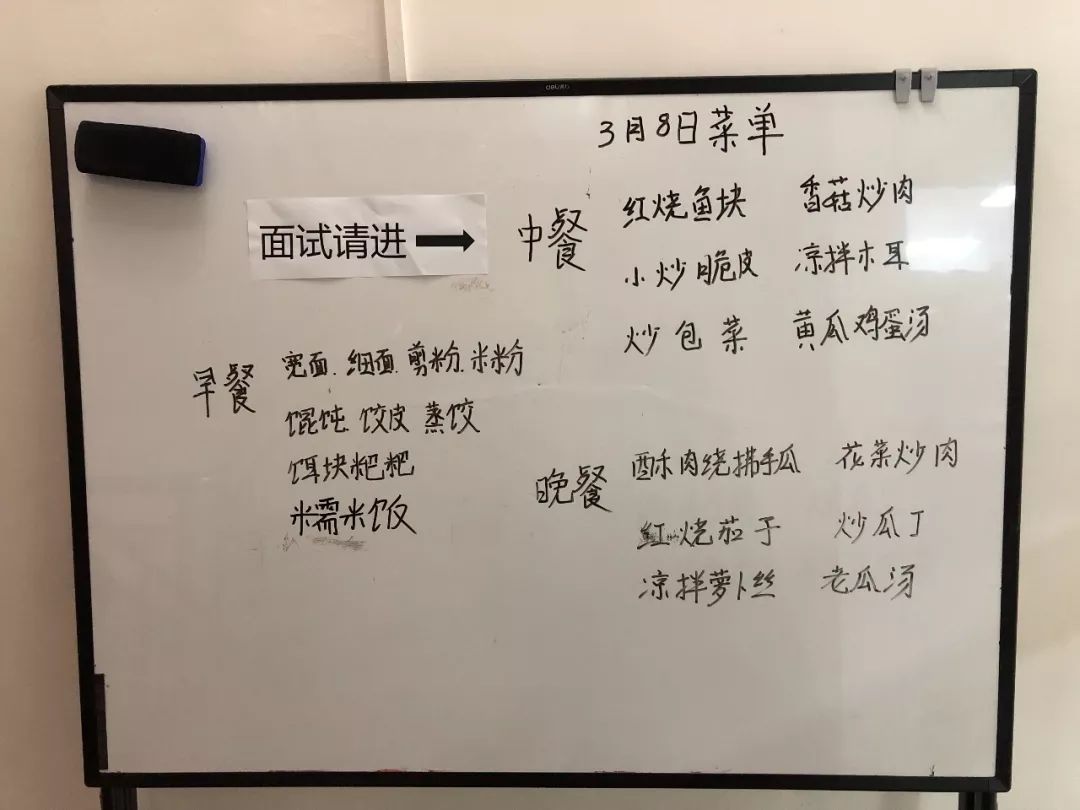 3月8日菜单
面试请进
早餐
宽面.细面.剪粉.米粉
馄饨.饺皮 蒸饺
饵块粑粑
糯米饭
中餐
红烧鱼块 香菇炒肉
小炒脆皮 凉拌木耳
炒包菜 黄瓜鸡蛋汤
晚餐
酥肉绕拂手瓜 花菜炒肉
红烧茄子 炒瓜丁
凉拌萝卜丝 老瓜汤